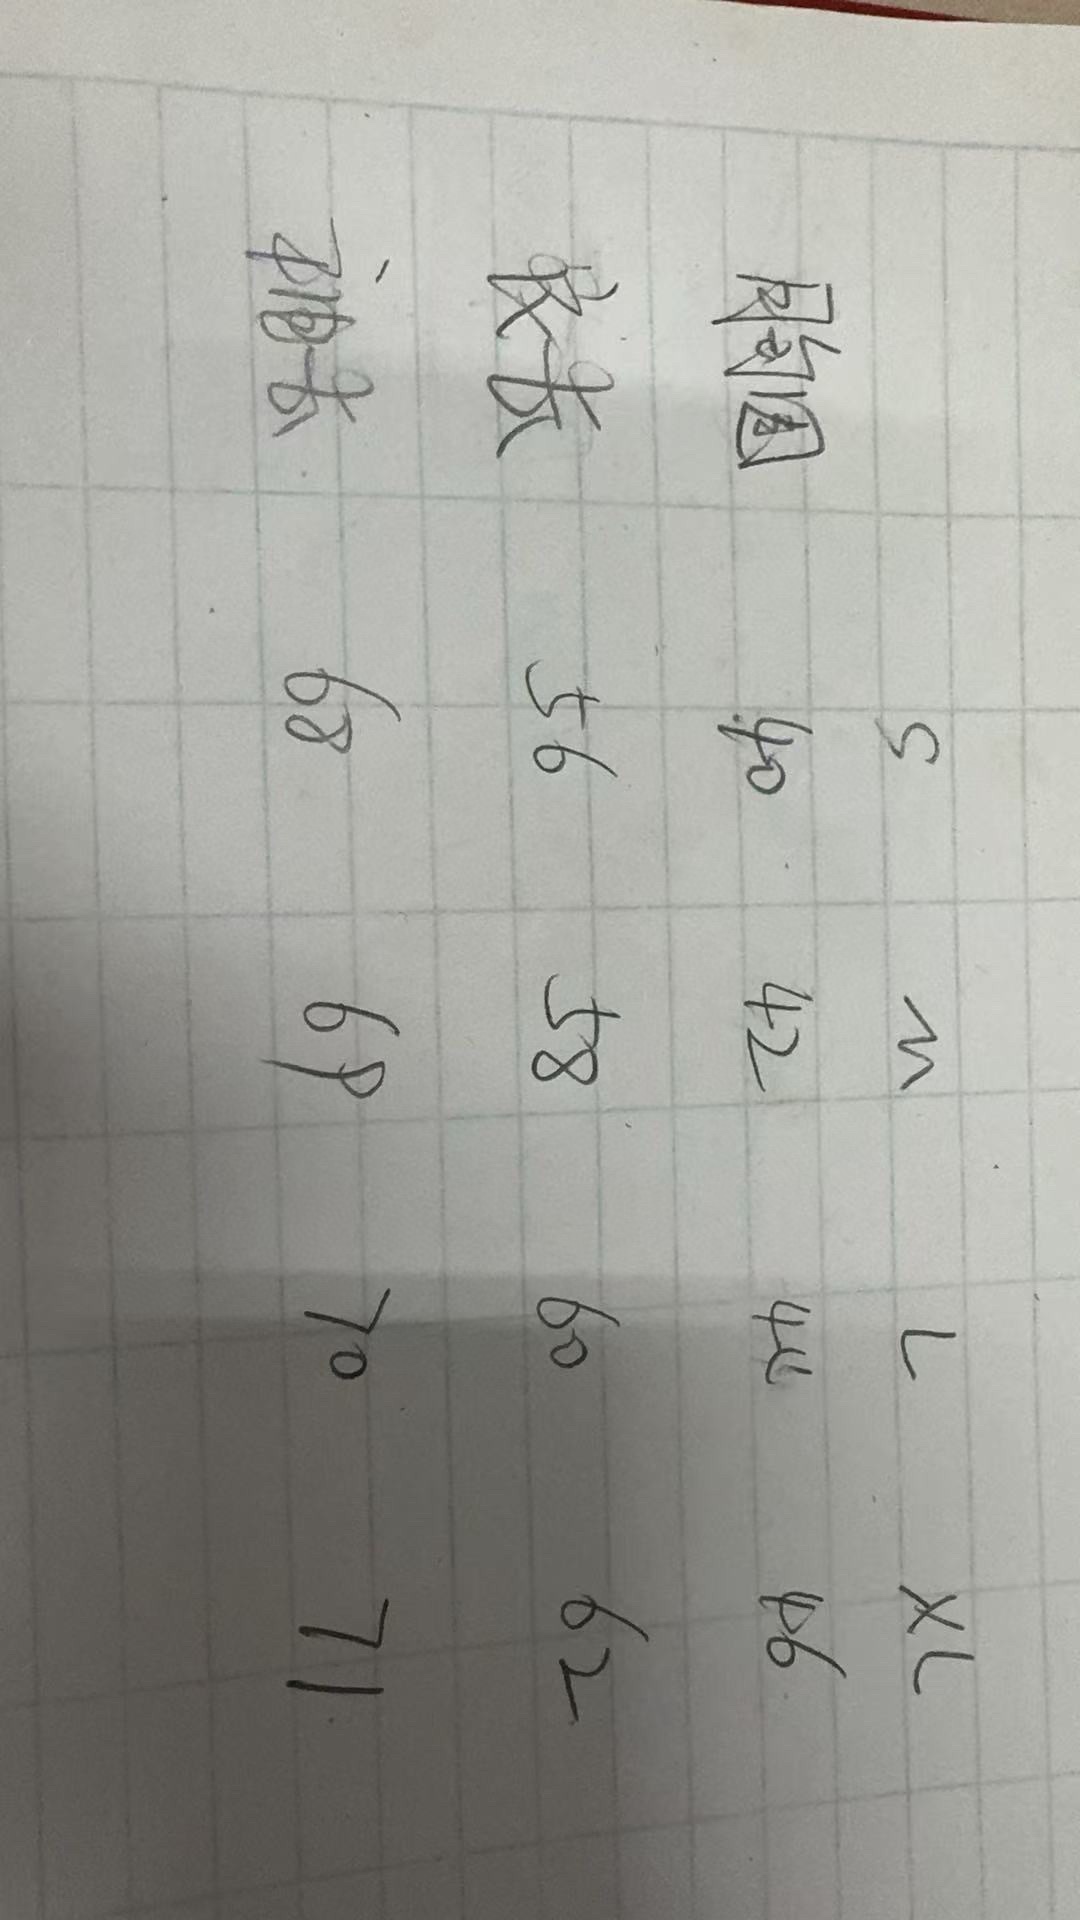 S M L XL
胸围 40 42 44 46
衣长 56 58 60 62
袖长 68 69 70 71